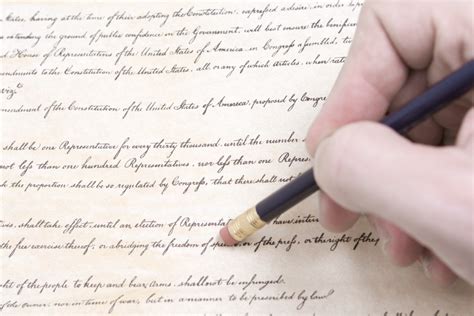 tates, having at the time of their adopting the Constitution, expreſsed a desire, in order to p
extending the ground of public confidence in the Government, will best insure the benefice
d House of Representatives of the United States of America, in Congreſs aſsembled, t
endments to the Constitution of the United States, all, or any of which Articles, when rati
viz.
mendment of the Constitution of the United States of America, proposed by Congre
shall be one Representative for every thirty thousand, until the number
not leſs than one hundred Representatives, nor leſs than one Repres
the proportion shall be so regulated by Congreſs, that there shall not
tives, shall take effect, until an election of Representat have interv
the free exercise thereof; or abridging the freedom of spe, or of the preſs, or the right of the p
ght of the people to keep and bear Arms, shall not be infringed.
of the owner, nor in time of war, but in a manner to be prescribed by law.